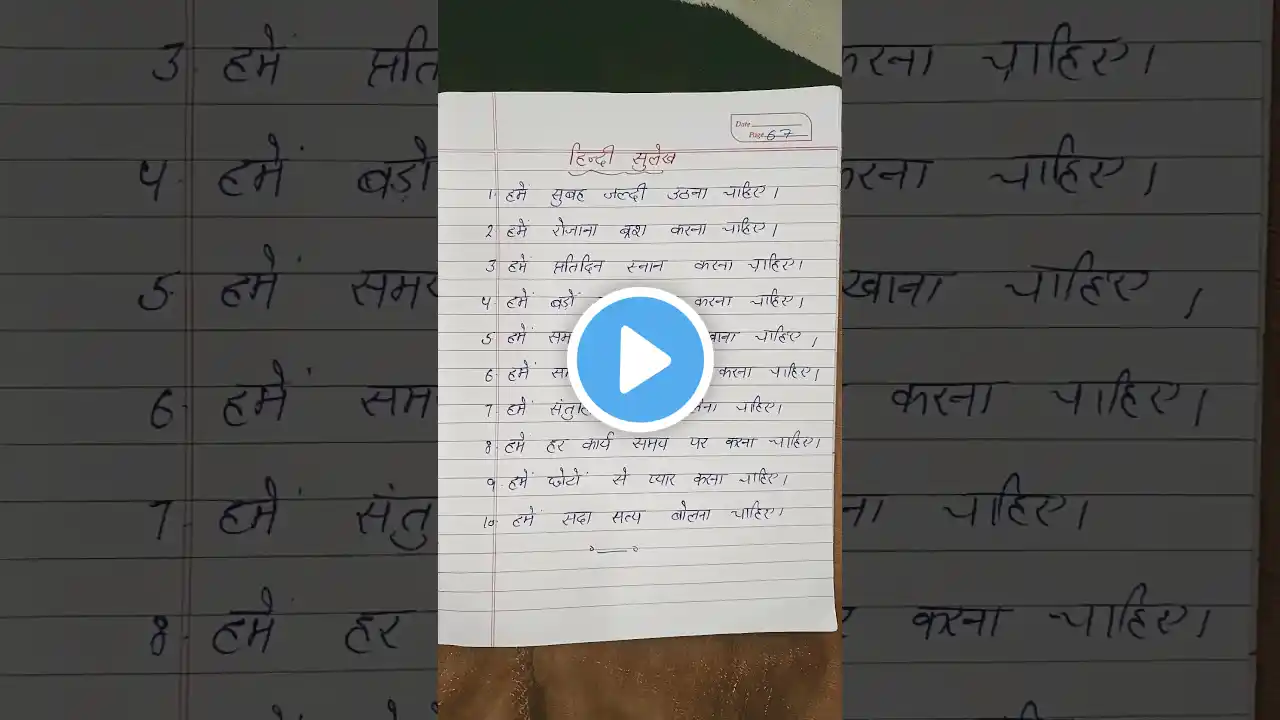 Date
Page 67
हिन्दी सुलेख
1. हमें सुबह जल्दी उठना चाहिए।
2 हमें रोजाना ब्रश करना चाहिए।
3 हमें प्रतिदिन स्नान करना चाहिए।
4 हमें बड़ों करना चाहिए।
5. हमें खाना चाहिए।
6. हमें करना चाहिए।
7. हमें चाहिए।
8. हमें हर कार्य समय पर करना चाहिए।
9. हमें छोटों से प्यार करना चाहिए।
10 हमें सदा सत्य बोलना चाहिए।